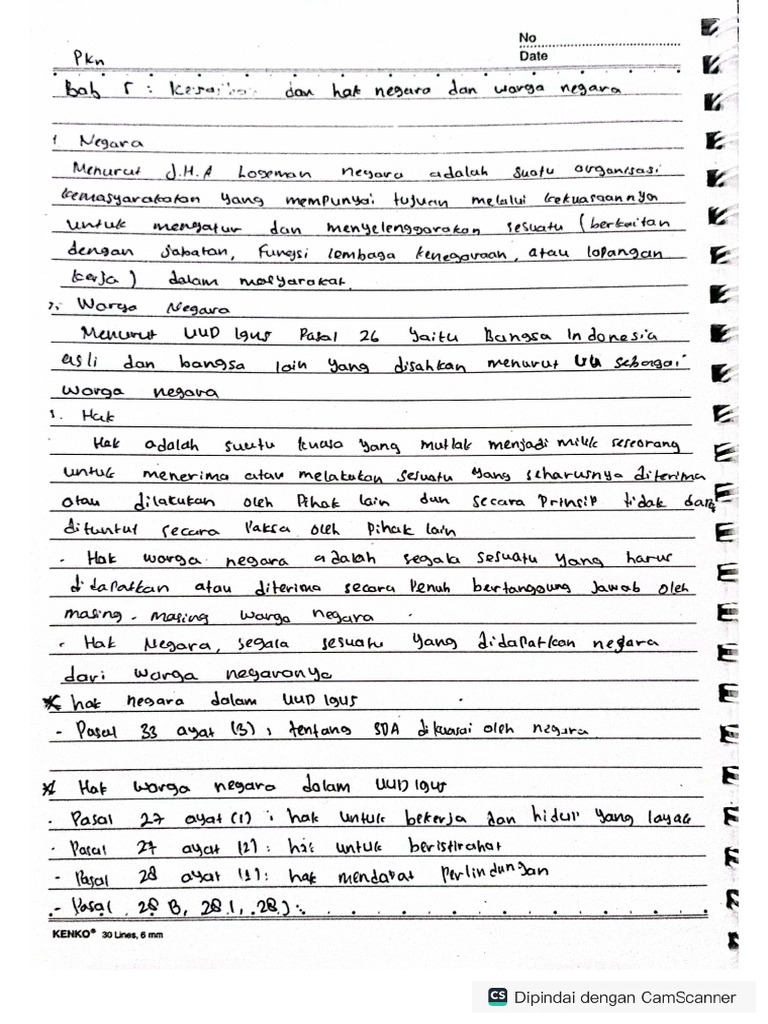 No
Date
Pkn
Bab 5 : dan hak negara dan warga negara
1 Negara
Menurut J.H.A Logeman negara adalah suatu organisasi
kemasyarakatan yang mempunyai tujuan melalui kekuasaannya
untuk mengatur dan menyelenggarakan sesuatu (berkaitan
dengan Jabatan, Fungsi lembaga kenegaraan, atau lapangan
kerja) dalam masyarakat.
2. Warga Negara
Menurut UUD 1945 Pasal 26 yaitu Bangsa Indonesia
asli dan bangsa lain yang disahkan menurut UU sebagai
warga negara
3. Hak
Hak adalah suatu kuasa yang mutlak menjadi milik seseorang
untuk menerima atau melakukan sesuatu yang seharusnya diterima
atau dilakukan oleh Pihak lain dan secara Prinsip tidak dapat
dituntut secara Paksa oleh Pihak lain
- Hak warga negara adalah segala sesuatu yang harus
didapatkan atau diterima secara Penuh bertanggung Jawab oleh
masing - masing warga negara
- Hak Negara, segala sesuatu yang didapatkan negara
dari warga negaranya
* hak negara dalam UUD 1945
- Pasal 33 ayat (3), tentang SDA dikuasai oleh negara
* Hak warga negara dalam UUD 1945
- Pasal 27 ayat (1) : hak untuk bekerja dan hidup yang layak
- Pasal 27 ayat (2) : hak untuk beristirahat
- Pasal 28 ayat (1) : hak mendapat Perlindungan
- Pasal 28 B, 28 I, 28 J :
KENKO® 30 Lines, 6 mm
CS Dipindai dengan CamScanner